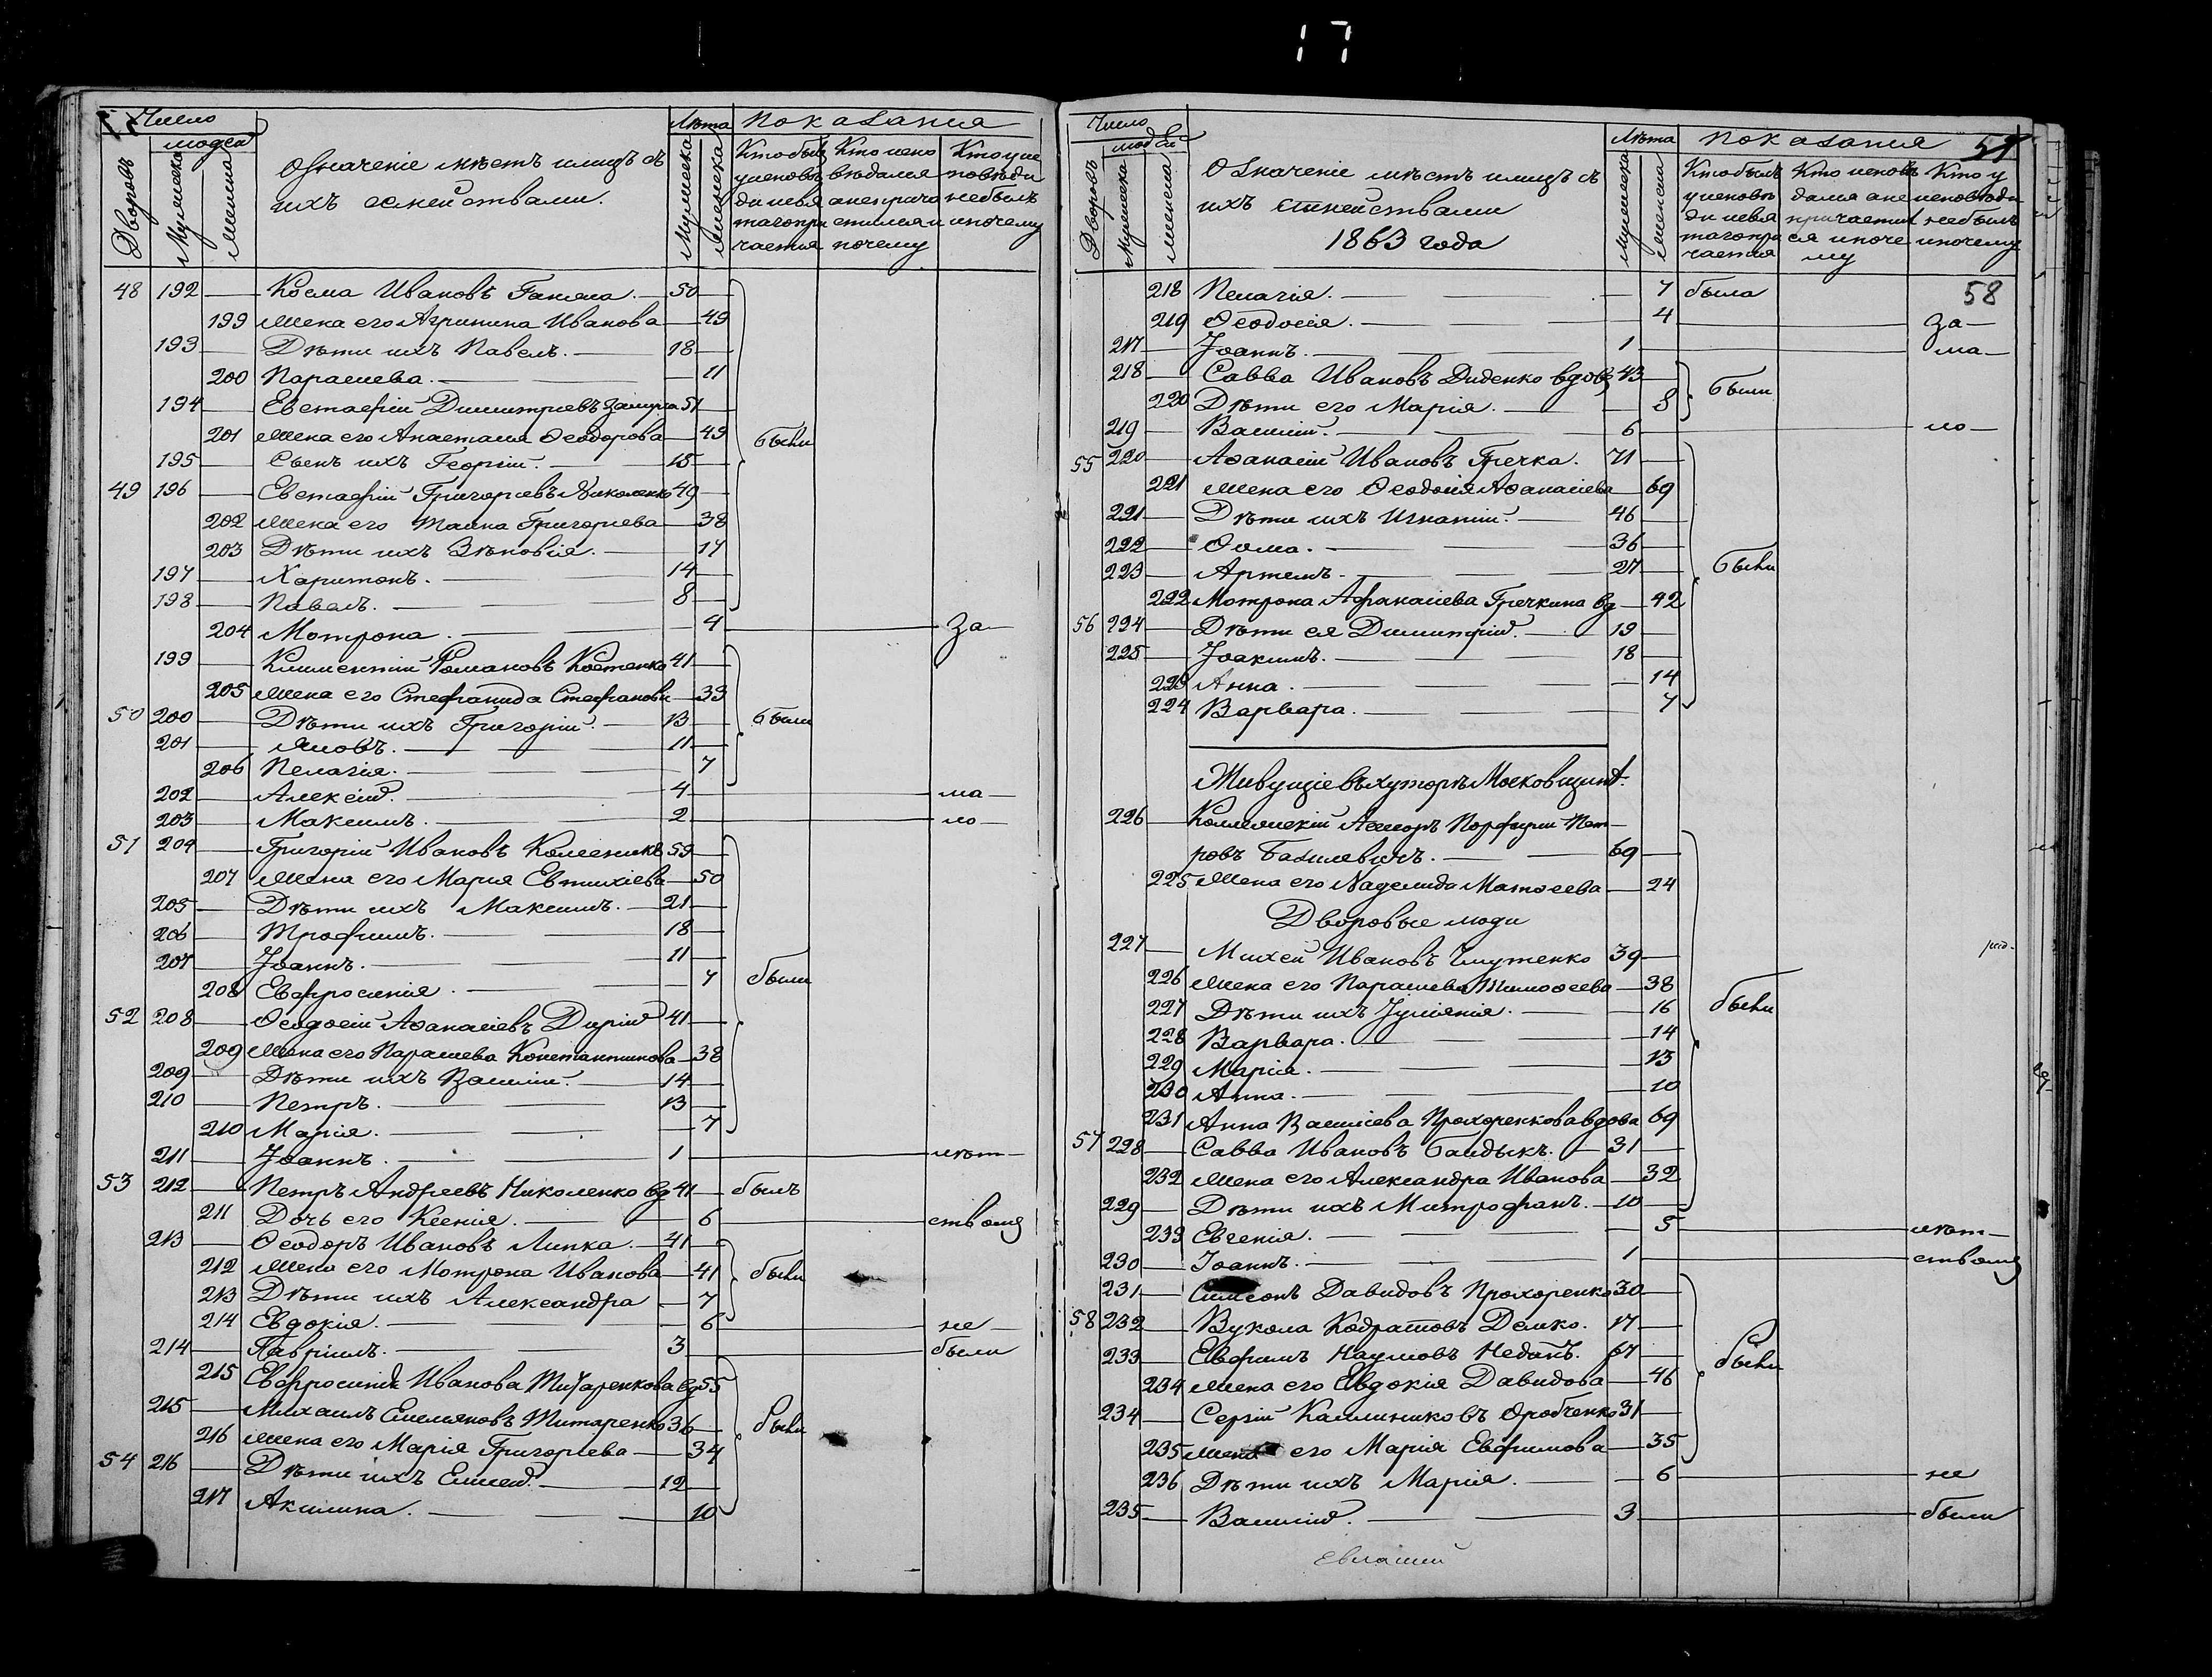 17
Число
людей
Дворовъ
Мужеска
Женска
Означеніе мѣстъ и лицъ съ
ихъ семействами.
Лѣта
Мужеска
Женска
Показанія
Кто былъ у исповѣди и св. таго причастія
Кто исповѣдался а не причастился и почему
Кто у исповѣди не былъ и почему
48 192 — Косма Ивановъ 50
199 жена его Агрипина Иванова — 49
193 — Дѣти ихъ Павелъ. — 18
200 Параскева. — 11
194 — Евстафій Димитріевъ 51
201 жена его Анастасія Ѳеодорова — 49 были
195 — Сынъ ихъ Георгій. — 15
49 196 — Евстафій Григорьевъ Николенко 49
202 жена его Таина Григорьева — 38
203 Дѣти ихъ Зѣновія. — 17
197 — Харитонъ. — 14
198 — Павелъ. — 8
204 Мотрона. — 4 — за—
199 — Климентій Романовъ Костенко 41
205 жена его Стефанида Стефанова — 33
50 200 — Дѣти ихъ Григорій. — 13 были
201 — Яковъ. — 11
206 Пелагія. — 7
202 — Алексій. — 4 — ма—
203 — Максимъ. — 2 — ло—
51 204 — Григорій Ивановъ Колесникъ 59
207 жена его Марія Евтихіева — 50
205 — Дѣти ихъ Максимъ. — 21
206 — Трофимъ. — 18
207 — Іоаннъ. — 11
208 Евфросинія. — 7 были
52 208 — Ѳеодосій Аѳанасіевъ 41
209 жена его Параскева Константинова — 38
209 — Дѣти ихъ Василій. — 14
210 — Петръ. — 13
210 Марія. — 7
211 — Іоаннъ. — 1 — лѣт—
53 212 — Петръ Андреевъ Николенко вд 41 — былъ
211 Дочь его Ксенія. — 6 — ствомъ
213 — Ѳеодоръ Ивановъ Липка. — 41
212 жена его Мотрона Иванова — 41 были
213 Дѣти ихъ Александра — 7
214 Евдокія. — 6 — не—
214 — Гавріилъ. — 3 — были
215 Евфросинія Иванова Титаренкова вд 55
215 — Михаилъ Емельяновъ Титаренко 36 были
216 жена его Марія Григорьева — 34
54 216 — Дѣти ихъ Елисей. — 12
217 Акилина. — 10
Число
людей
Дворовъ
Мужеска
Женска
Означеніе мѣстъ и лицъ съ
ихъ семействами
1863 года
Лѣта
Мужеска
Женска
Показанія
57
Кто былъ у исповѣди и св. таго причастія
Кто исповѣдался а не причастился и почему
Кто у исповѣди не былъ и почему
218 Пелагія. — 7 была 58
219 Ѳеодосія. — 4 — за—
217 — Іоаннъ. — 1 — ма—
218 — Савва Ивановъ Диденко вдовъ 43 были
220 Дѣти его Марія. — 8
219 — Василій. — 6 — ло—
55 220 — Аѳанасій Ивановъ Гречка. 71
221 жена его Ѳеодосія Аѳанасіева — 69
221 — Дѣти ихъ Игнатій. — 46
222 — Ѳома. — 36
223 — Артемъ. — 27 были
222 Мотрона Афанасіева Гречкина вд — 42
56 224 — Дѣти ея Димитрій. — 19
225 — Іоакимъ. — 18
223 Анна. — 14
224 Варвара. — 7
Живущіе въ хуторѣ Московщинѣ.
226 — Коллежскій Ассесоръ Порфирій Пет—
ровъ Базилевичъ. — 69
225 жена его Надежда Матѳеева — 24
Дворовые люди
227 — Михей Ивановъ 39
226 жена его Параскева Тимоѳеева — 38
227 Дѣти ихъ Іуліанія. — 16 были
228 Варвара. — 14
229 Марія. — 13
230 Анна. — 10
231 Анна Василіева Прохоренкова вдова 69
57 228 — Савва Ивановъ Байдыкъ. — 31
232 жена его Александра Иванова — 32
229 — Дѣти ихъ Митрофанъ. — 10
233 Евгенія. — 5 — лѣт—
230 — Іоаннъ. — 1 — ствомъ
231 — Симеонъ Давидовъ Прохоренко 30
58 232 — Вукола Кодратовъ Демко. 17
233 — Евфимъ Наумовъ 67 были
234 жена его Евдокія Давидова — 46
234 — Сергій Каллиниковъ 31
235 жена его Марія Евфимова — 35
236 Дѣти ихъ Марія. — 6 — не
235 — Василій. — 3 — были